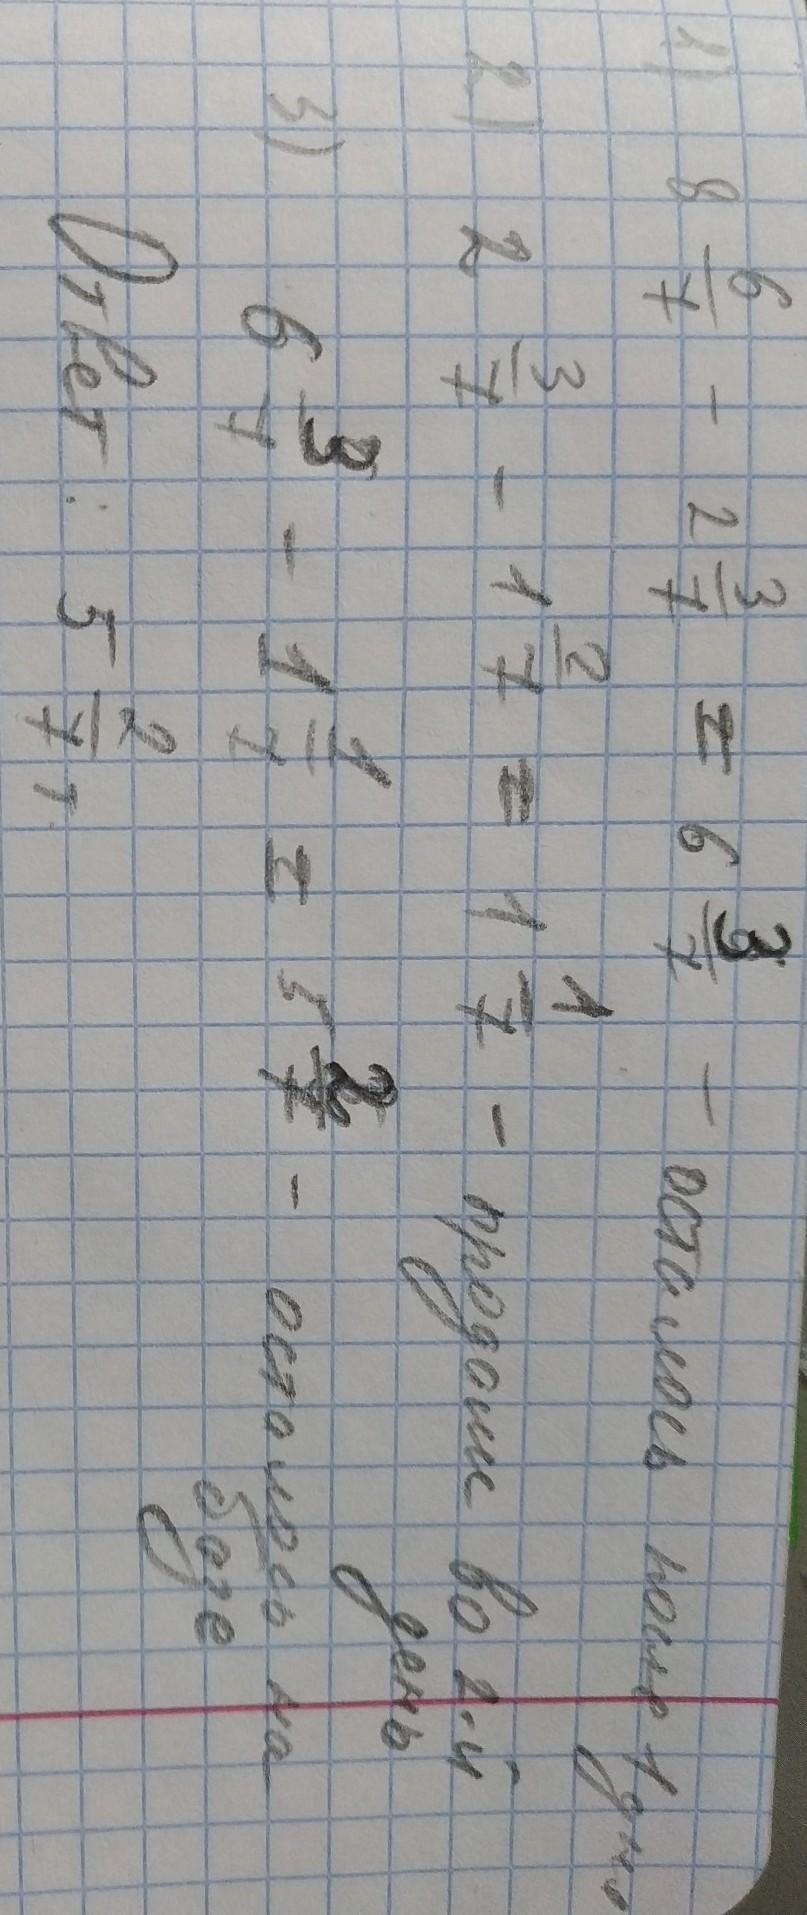 1) 8 6/7 - 2 3/7 = 6 3/7 - осталось после 1 дня
2) 2 3/7 - 1 2/7 = 1 1/7 - продали во 2-й
день
3) 6 3/7 - 1 1/7 = 5 2/7 - осталось на
базе
Ответ: 5 2/7 т.